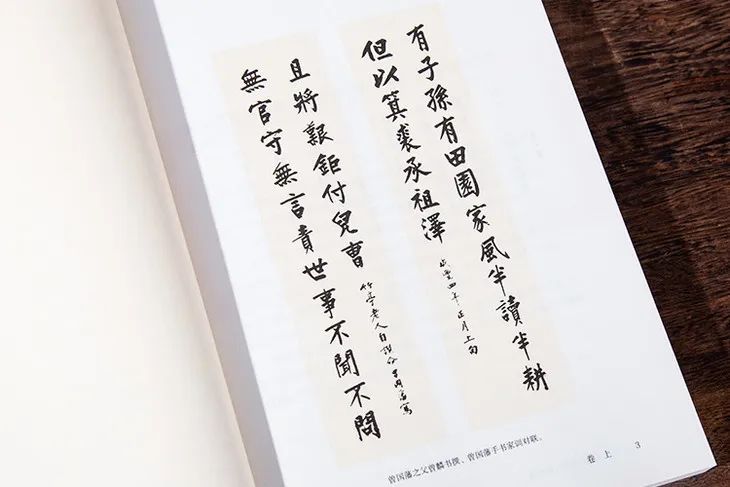 有子孫有田園家風半讀半耕
但以箕裘承祖澤
咸豐四年正月上旬
無官守無言責世事不聞不問
且將艱鉅付兒曹
竹亭老人自譔命子國藩寫
曾国藩之父曾麟书撰、曾国藩手书家训对联。
卷上 3